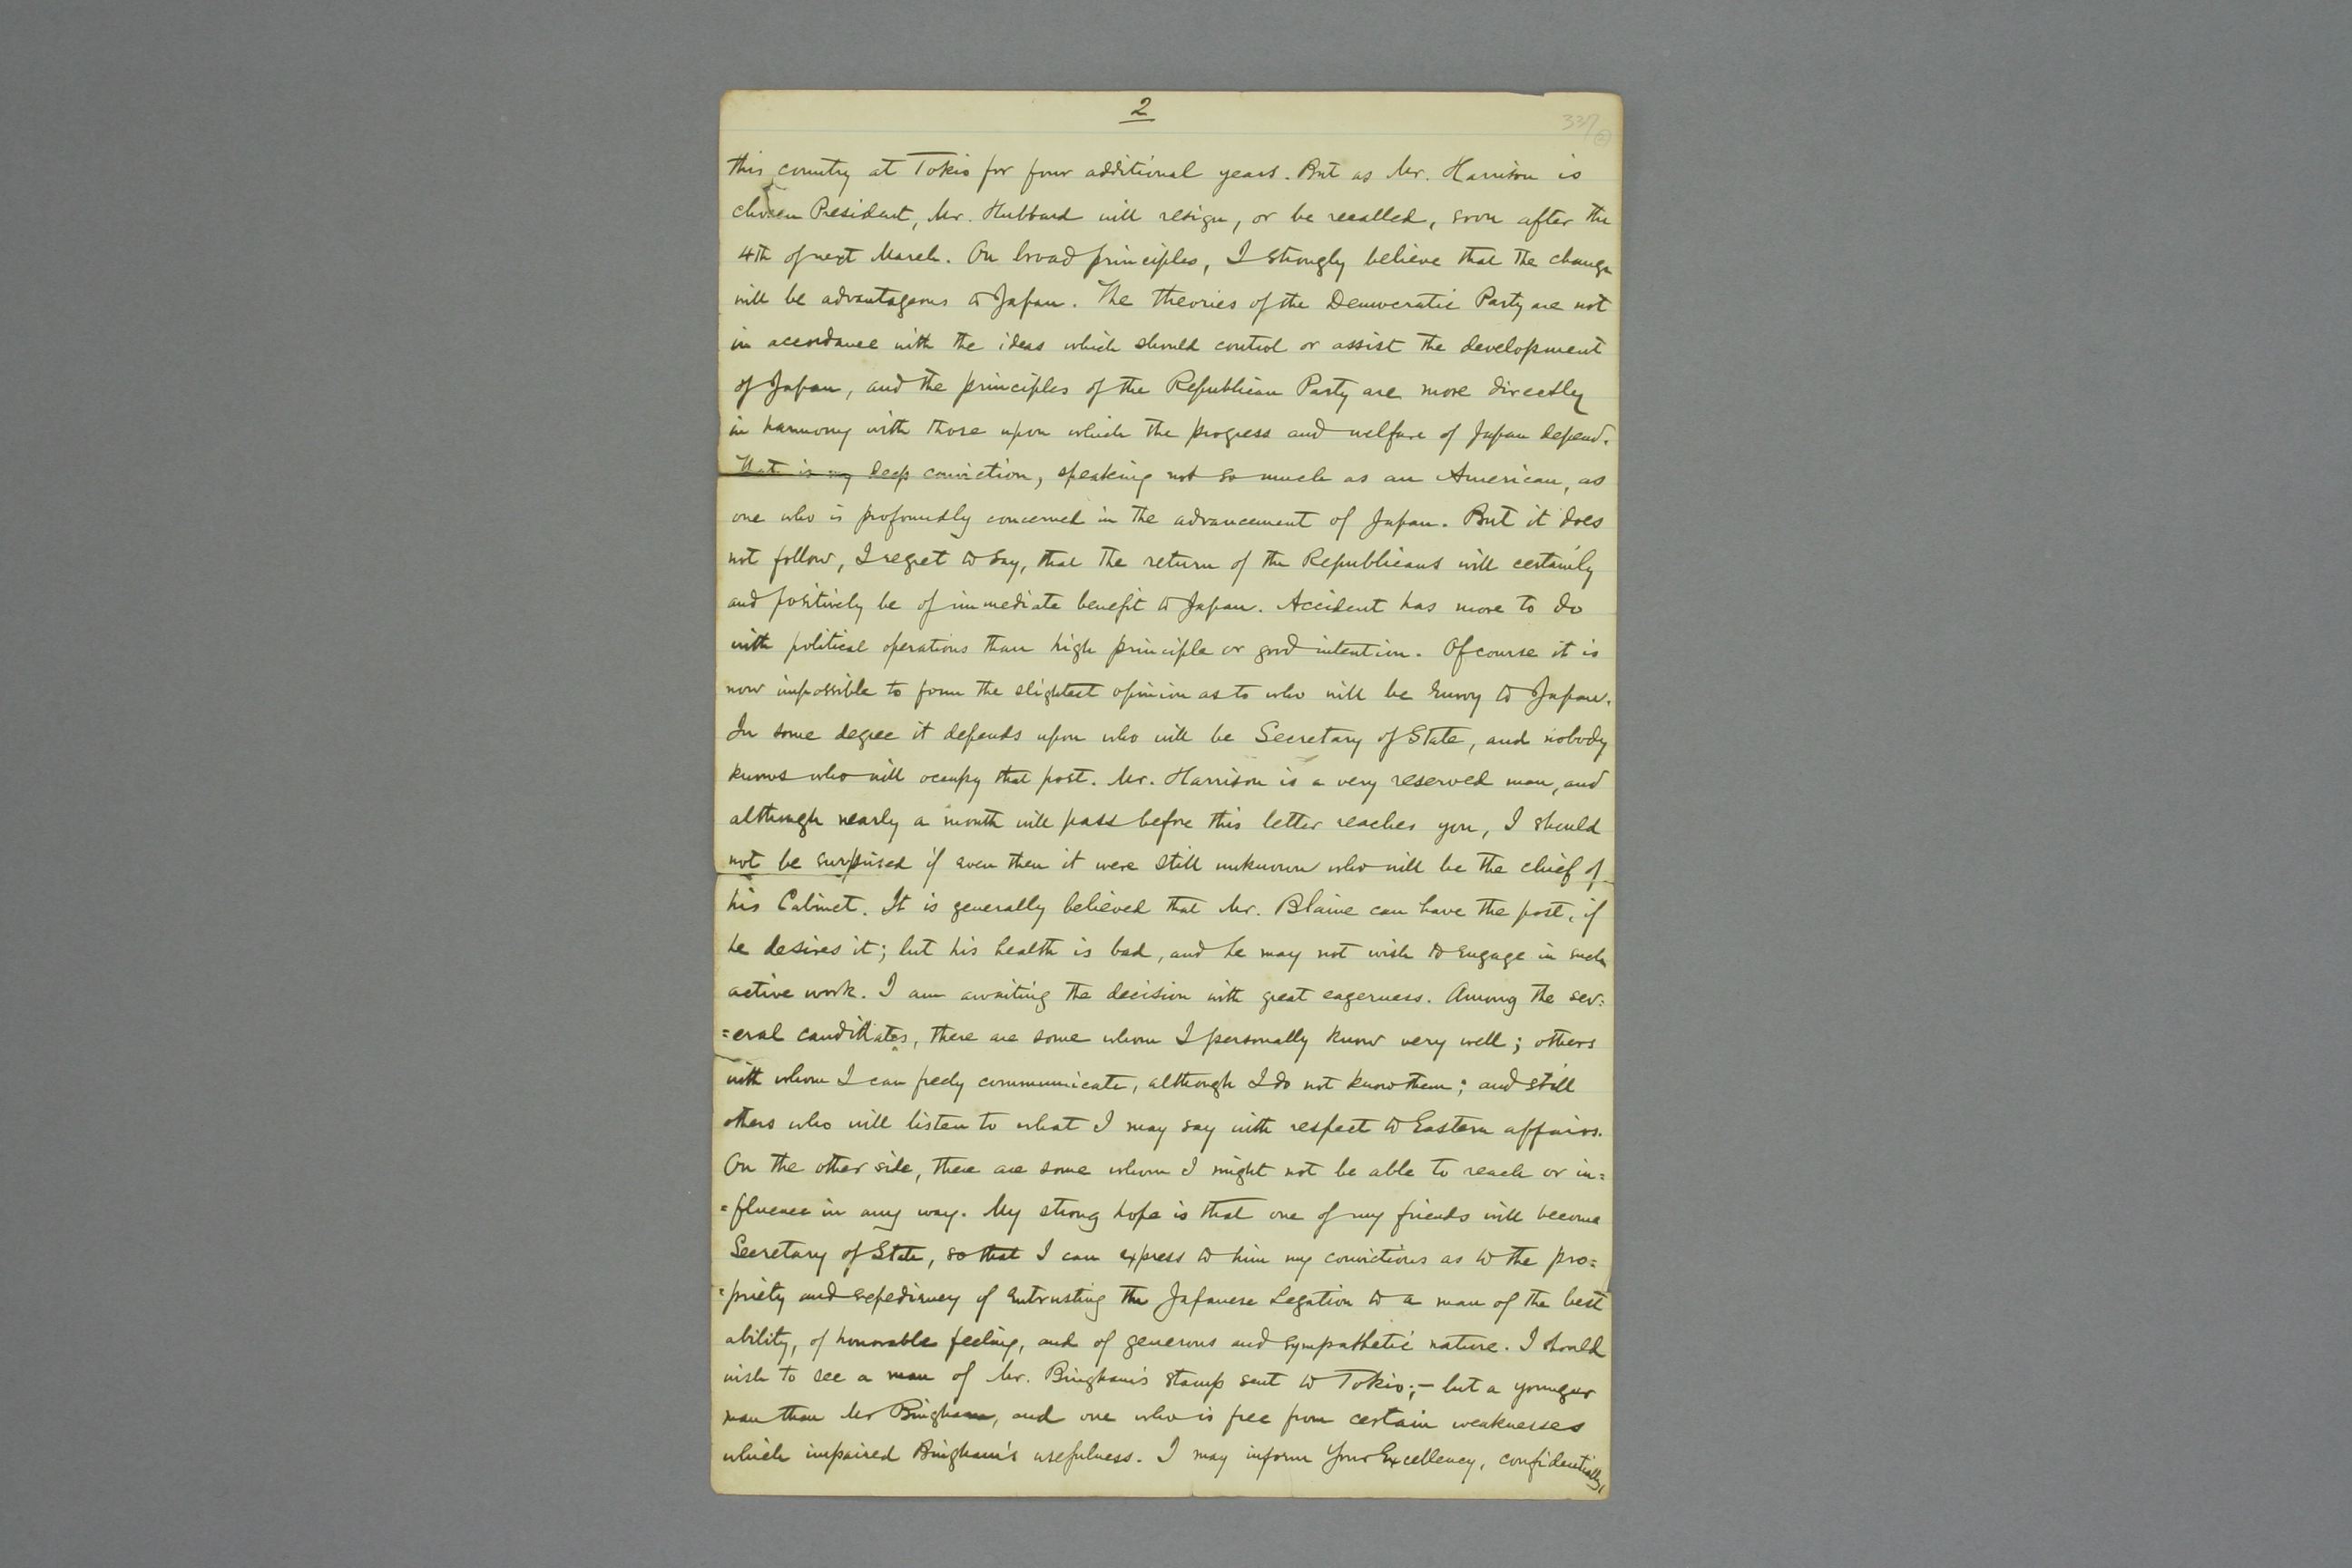 2
337
this country at Tokio for four additional years. But as Mr. Harrison is
chosen President, Mr. Hubbard will resign, or be recalled, soon after the
4th of next March. On broad principles, I strongly believe that the change
will be advantageous to Japan. The theories of the Democratic Party are not
in accordance with the ideas which should control or assist the development
of Japan, and the principles of the Republican Party are more directly
in harmony with those upon which the progress and welfare of Japan depend.
That is my deep conviction, speaking not so much as an American, as
one who is profoundly concerned in the advancement of Japan. But it does
not follow, I regret to say, that the return of the Republicans will certainly
and positively be of immediate benefit to Japan. Accident has more to do
with political operations than high principle or good intention. Of course it is
now impossible to form the slightest opinion as to who will be Envoy to Japan.
In some degree it depends upon who will be Secretary of State, and nobody
knows who will occupy that post. Mr. Harrison is a very reserved man, and
although nearly a month will pass before this letter reaches you, I should
not be surprised if even then it were still unknown who will be the chief of
his Cabinet. It is generally believed that Mr. Blaine can have the post, if
he desires it; but his health is bad, and he may not wish to engage in such
active work. I am awaiting the decision with great eagerness. Among the sev=
=eral candidates, there are some whom I personally know very well; others
with whom I can freely communicate, although I do not know them; and still
others who will listen to what I may say with respect to Eastern affairs.
On the other side, there are some whom I might not be able to reach or in=
=fluence in any way. My strong hope is that one of my friends will become
Secretary of State, so that I can express to him my convictions as to the pro=
=priety and expediency of entrusting the Japanese Legation to a man of the best
ability, of honorable feeling, and of generous and sympathetic nature. I should
wish to see a man of Mr. Bingham's stamp sent to Tokio;— but a younger
man than Mr Bingham, and one who is free from certain weaknesses
which impaired Bingham's usefulness. I may inform Your Excellency, confidentially,